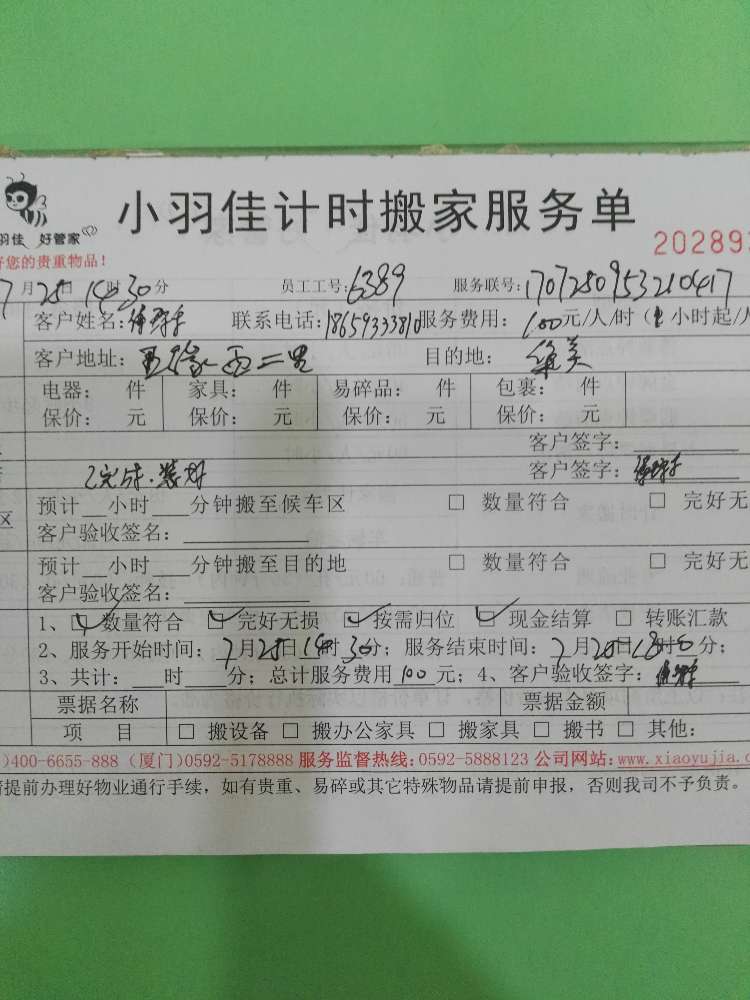 小羽佳计时搬家服务单
羽佳 好管家
202893
好您的贵重物品！
7月28日14时30分 员工工号：6389 服务联号：1707280953210417
客户姓名： 联系电话：18659333810 服务费用：100元/人/时（ 小时起/人
客户地址： 西二里 目的地：华美
电器： 件 家具： 件 易碎品： 件 包裹： 件
保价： 元 保价： 元 保价： 元 保价： 元
客户签字：
已完成.装好 客户签字：
预计 小时 分钟搬至候车区 □ 数量符合 □ 完好无
区
客户验收签名：
预计 小时 分钟搬至目的地 □ 数量符合 □ 完好无
客户验收签名：
1、☑ 数量符合 ☑ 完好无损 ☑ 按需归位 ☑ 现金结算 □ 转账汇款
2、服务开始时间：7月28日14时30分；服务结束时间：7月28日18时0分；
3、共计： 时 分；总计服务费用100元；4、客户验收签字：
票据名称 票据金额
项 目 □ 搬设备 □ 搬办公家具 □ 搬家具 □ 搬书 □ 其他：
)400-6655-888（厦门)0592-5178888 服务监督热线：0592-5888123 公司网站：www.xiaoyujia.c
请提前办理好物业通行手续，如有贵重、易碎或其它特殊物品请提前申报，否则我司不予负责。